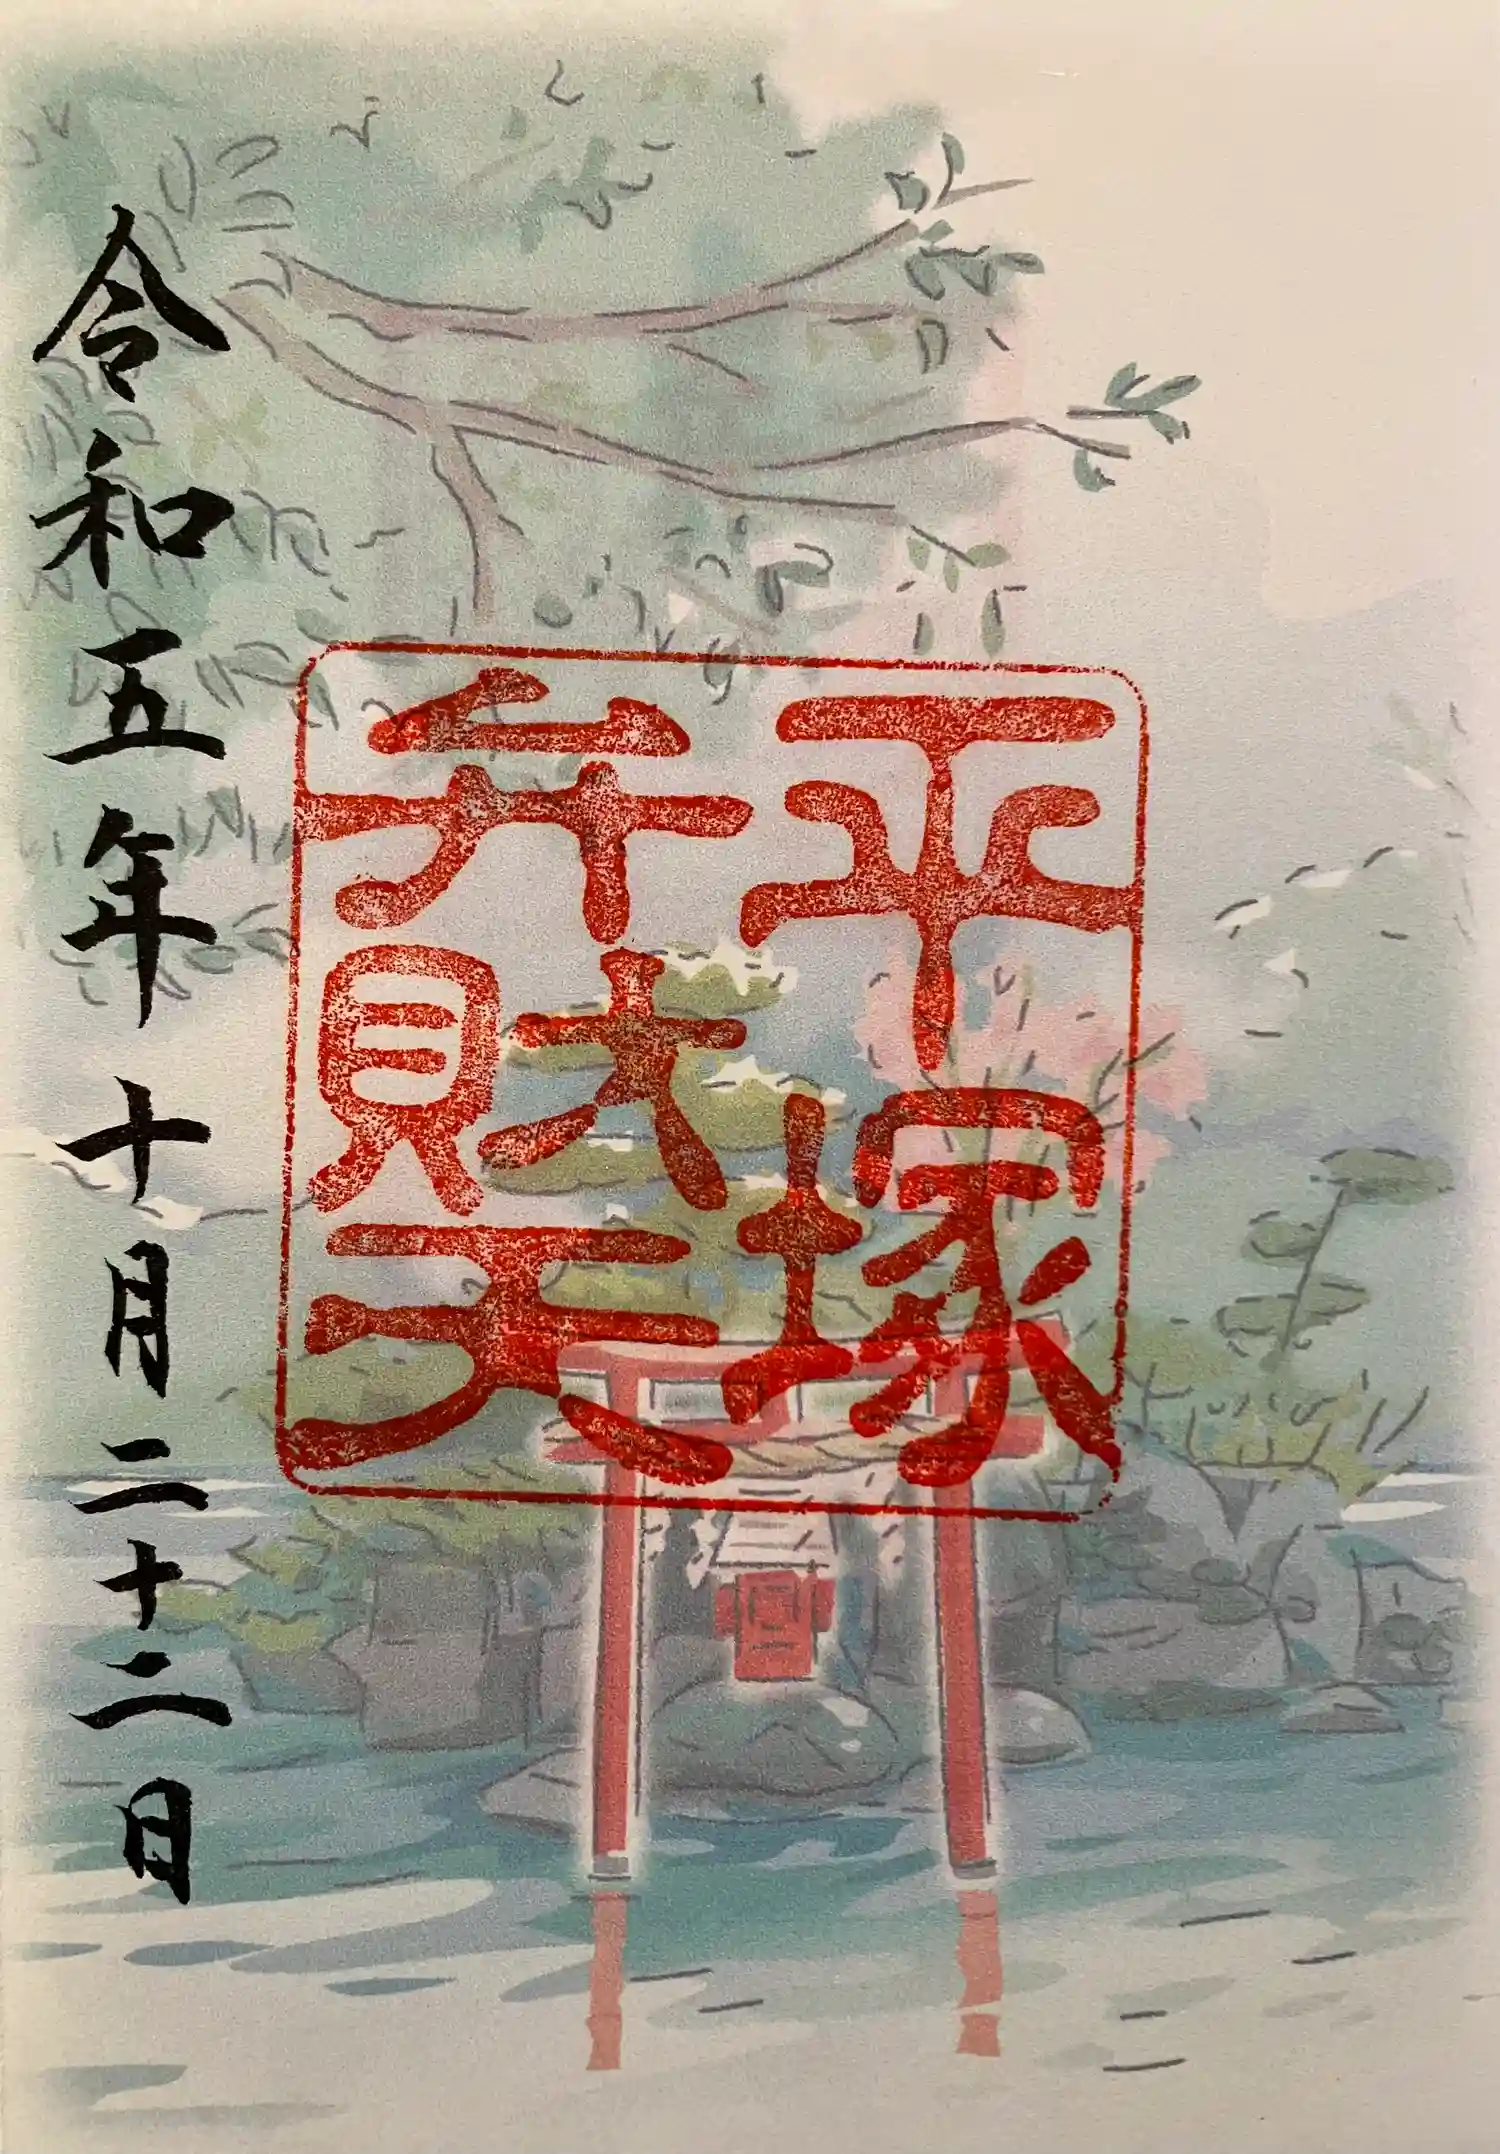 平塚
弁財天
令和五年十月二十二日